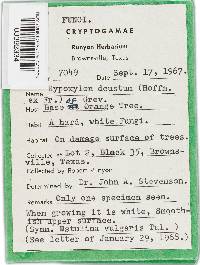 FUNGI.
CRYPTOGAMAE
Runyon Herbarium
Brownsville, Texas
7049 Date Sept. 17, 1967.
Name Hypoxylon deustum (Hoffm.
ex Fr.) Grev.
Host Base Orange Tree.
A hard, white Fungi.
Habitat On damage surface of trees.
Collected Lot 2, Block 35, Browns-
ville, Texas.
Collected by Robert Runyon
Determined by Dr. John A. Stevenson.
Remarks Only one specimen seen.
When growing it is white, Smooth-
ish upper surface.
(Synm. Ustulina vulgaris Tul.)
(See letter of January 29, 1968.)